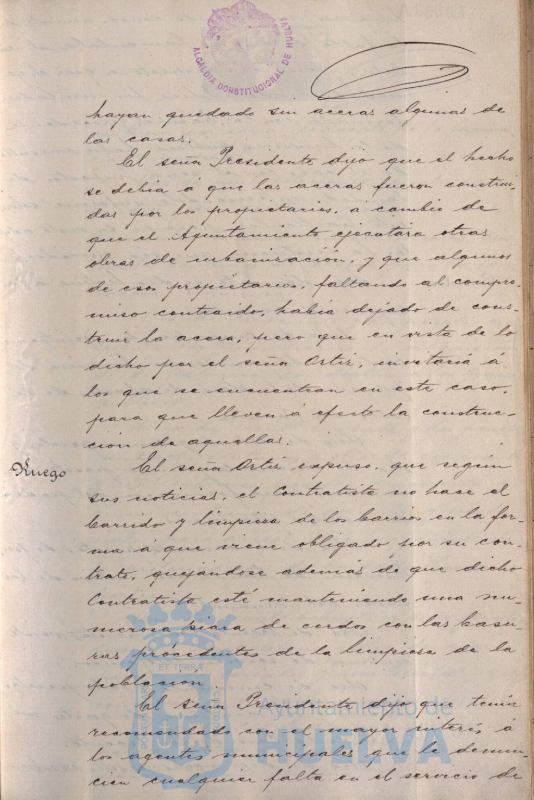 ALCALDIA CONSTITUCIONAL DE HUELVA
hayan quedado sin aceras algunas de
las casas.
El señor Presidente dijo que el hecho
se debia á que las aceras fueron construi-
das por los propietarios, á cambio de
que el Ayuntamiento ejecutara otras
obras de urbanización, y que algunos
de esos propietarios, faltando al compro-
miso contraido, habia dejado de cons-
truir la acera, pero que en vista de lo
dicho por el señor Ortiz, invitaria á
los que se encuentran en este caso,
para que lleven á efecto la construc-
ción de aquellas.
Ruego
El señor Ortiz expuso, que según
sus noticias, el Contratista no hase el
barrido y limpiesa de los barrios en la for-
ma á que viene obligado por su con-
trato, quejándose además de que dicho
Contratista esté manteniendo una nu-
merosa piara de cerdos con las basu-
ras procedentes de la limpiesa de la
población.
El señor Presidente dijo que tenia
recomendado con el mayor interés á
los agentes municipales que le denun-
cien cualquier falta en el servicio de
Ayuntamiento de
HUELVA